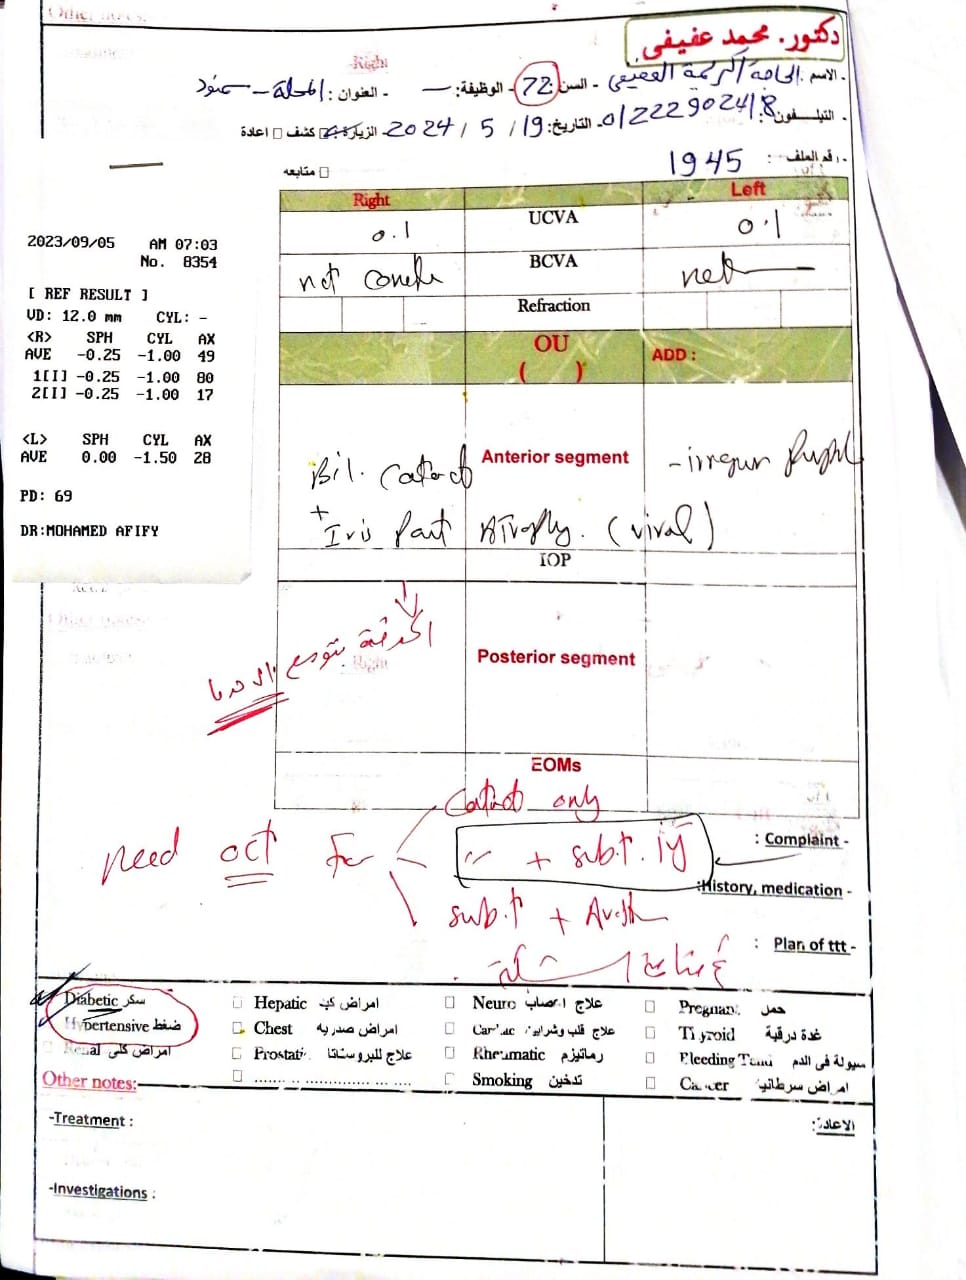 دكتور. محمد عفيفى
- الاسم : الحاجة السن : 72 - الوظيفة : — - العنوان : المحلة - سمنود
- التليفون : 01222902418 - التاريخ : 19 / 5 / 2024 الزيارة : كشف □ اعادة
- رقم الملف : 1945
□ متابعه
Right Left
0.1 UCVA 0.1
not BCVA
Refraction
OU ADD :
( )
2023/09/05 AM 07:03
No. 8354
[ REF RESULT ]
VD: 12.0 mm CYL: -
<R> SPH CYL AX
AVE -0.25 -1.00 49
1[I] -0.25 -1.00 80
2[I] -0.25 -1.00 17
<L> SPH CYL AX
AVE 0.00 -1.50 28
PD: 69
DR:MOHAMED AFIFY
Bil. Cataract Anterior segment
+ Iris Atrophy. (viral)
IOP
الحدقة تتوسع
Posterior segment
EOMs
Cataract only
need oct for " + subt. inj
subt +
: Complaint -
:History, medication -
: Plan of ttt -
Diabetic سكر
Hypertensive ضغط
Renal امراض كلى
□ Hepatic امراض كبد
Chest امراض صدريه
□ Prostati علاج للبروستاتا
□ ...................
□ Neuro علاج اعصاب
□ علاج قلب وشرايين
□ Rheumatic رماتيزم
Smoking تدخين
□ Pregnant حمل
□ Thyroid غدة درقية
□ سيولة فى الدم
□ Cancer امراض سرطانية
Other notes:
-Treatment :
الاعادة:
-Investigations :